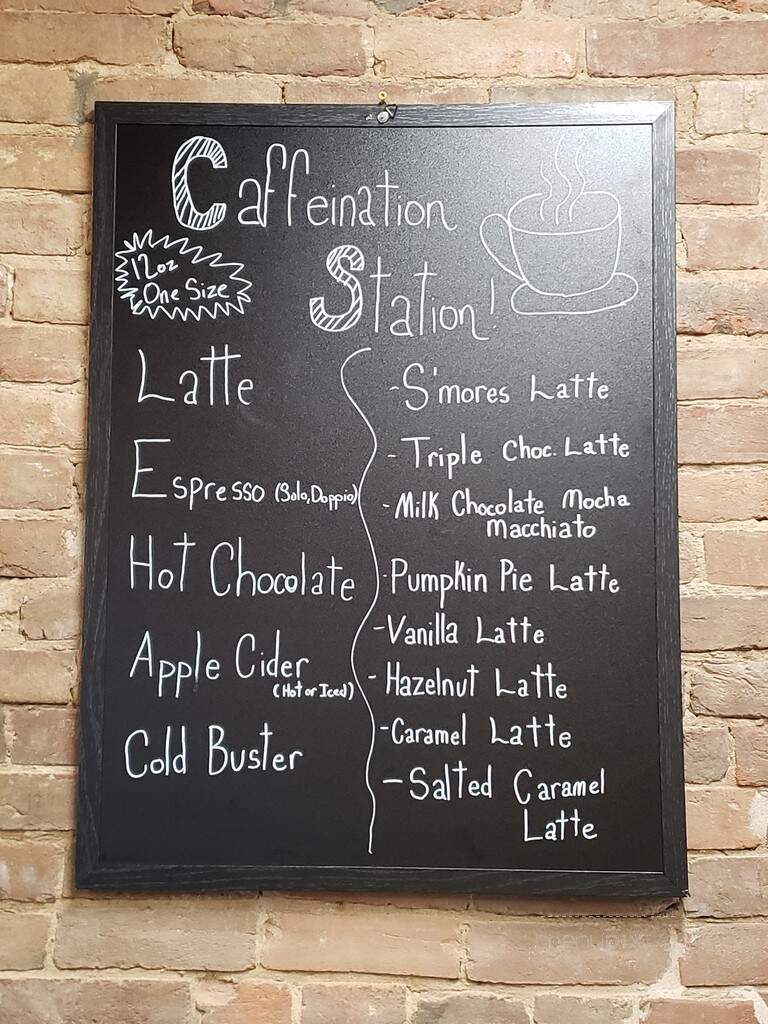 Caffeination
Station!
12oz
One Size
Latte
Espresso (Solo, Doppio)
Hot Chocolate
Apple Cider
(Hot or Iced)
Cold Buster
-S'mores Latte
-Triple Choc. Latte
-Milk Chocolate Mocha
Macchiato
-Pumpkin Pie Latte
-Vanilla Latte
-Hazelnut Latte
-Caramel Latte
-Salted Caramel
Latte